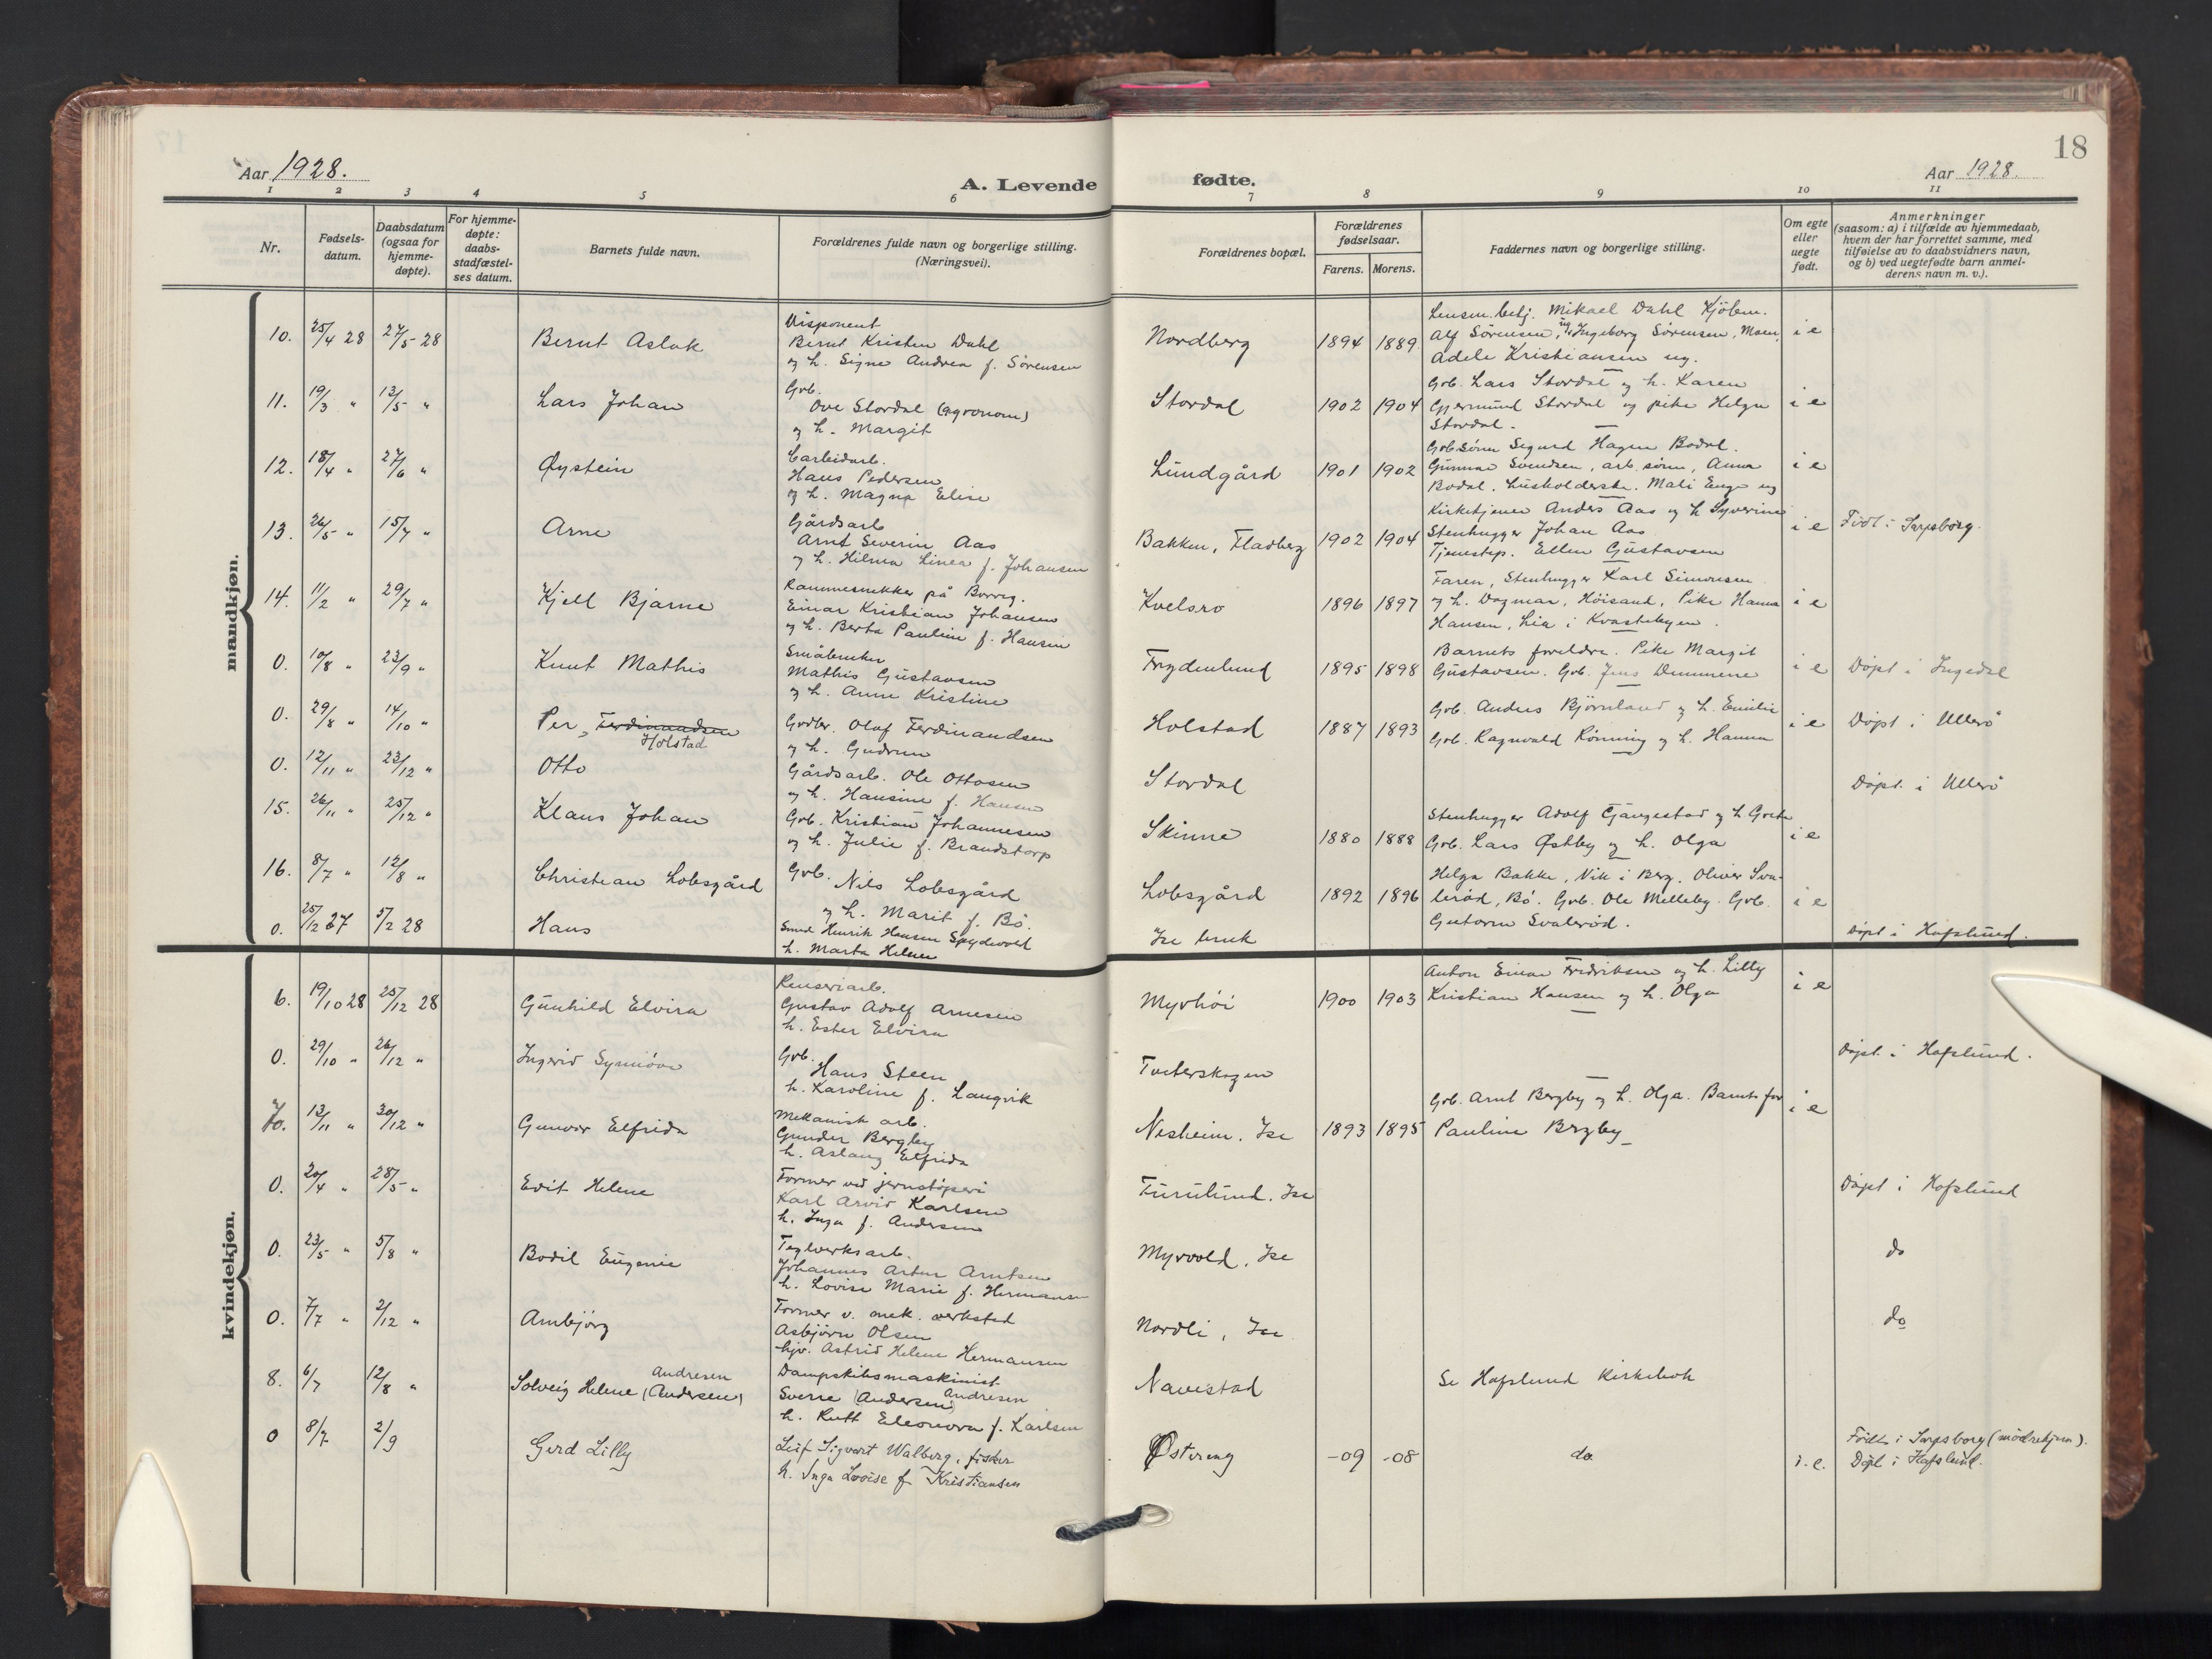 18
Aar 1928.
A. Levende fødte.
Aar 1928.
1 2 3 4 5 6 7 8 9 10 11
Nr.
Fødsels-
datum.
Daabsdatum
(ogsaa for
hjemme-
døpte).
For hjemme-
døpte:
daabs-
stadfæstel-
ses datum.
Barnets fulde navn.
Forældrenes fulde navn og borgerlige stilling.
(Næringsvei).
Forældrenes bopæl.
Forældrenes
fødselsaar.
Farens. Morens.
Faddernes navn og borgerlige stilling.
Om egte
eller
uegte
født.
Anmerkninger
(saasom: a) i tilfælde av hjemmedaab,
hvem der har forrettet samme, med
tilføielse av to daabsvidners navn,
og b) ved uegtefødte barn anmel-
derens navn m. v.).
mandkjøn.
10. 25/4 28 27/5 28 Bernt Aslak
Disponent
Bernt Kristen Dahl
og h. Signe Andrea f. Sörensen
Nordberg 1894 1889
Mikael Dahl Kjöben.
Alf Sørensen, Ingeborg Sørensen, Moen,
Adele Kristiansen ug.
i e
11. 19/3 " 13/5 " Lars Johan
Grb.
Ove Stordal (agronom)
og h. Margit
Stordal 1902 1904
Grb. Lars Stordal og h. Karen
Gjermund Stordal og pike Helga
Stordal.
i e
12. 18/4 " 27/6 " Øystein
Carbidarb.
Hans Pedersen
og h. Magna Elise
Lundgård 1901 1902
Grb.sönn Sigurd Hagen Bodal.
Gunnar Svendsen, arb. sönn, Anna
Bodal. Husholderske. Mali Enge ug
i e
13. 26/5 " 15/7 " Arne
Gårdsarb
Arnt Severin Aas
og h. Hilma Linea f. Johansen
Bakken, Fladberg 1902 1904
Kirketjener Anders Aas og h Syverine
Stenhugger Johan Aas
Tjenestep. Ellen Gustavsen
i e Födt i Sarpsborg.
14. 11/2 " 29/7 " Kjell Bjarne
Rammesnekker på Borreg.
Einar Kristian Johansen
og h. Berta Pauline f. Hansen
Kvelsro 1896 1897
Faren, Stenhugger Karl Simonsen
og h. Dagmar, Höisand, Pike Hanna
Hansen, Lia i Kvastebyen.
i e
0. 10/8 " 23/9 " Knut Mathis
Småbruker
Mathis Gustavsen
og h. Anne Kristine
Frydenlund 1895 1898
Barnets foreldre. Pike Margit
Gustavsen. Grb. Jens Dammene
i e Döpt i Ingedal
0. 29/8 " 14/10 " Per, Ferdinandsen
Holstad
Grdbr. Olaf Ferdinandsen
og h. Gudrun
Holstad 1887 1893
Grb. Anders Björnland og h. Emilie
Grb. Ragnvald Rönning og h. Hanna
i e Döpt i Ullerö
0. 12/11 " 23/12 " Otto
Gårdsarb. Ole Ottosen
og h. Hansine f. Hansen
Stordal
Döpt. i Ullerö
15. 26/11 " 25/12 " Klaus Johan
Grb. Kristian Johannesen
og h. Julie f. Brandstorp
Skinne 1880 1888
Stenhugger Adolf Tjängestad og h Grete
Grb. Lars Østby og h. Olga
i e
16. 8/7 " 12/8 " Christian Lobsgård
Grb.
Nils Lobsgård
og h. Marit f. Bö.
Lobsgård 1892 1896
Helga Bakke, Vik i Berg. Oliver Sva-
leröd, Bö. Grb. Ole Melleby. Grb.
Guttorm Svaleröd.
i e
0. 25/12 27 5/2 28 Hans
Smed Henrik Hansen Spydevold
h. Marta Helene
Ise bruk
döpt i Hafslund.
kvindekjøn.
6. 19/10 28 25/12 28 Gunhild Elvira
Renseriarb.
Gustav Adolf Arnesen
h. Ester Elvira
Myrhöi 1900 1903
Anton Einar Fredriksen og h. Lilly
Kristian Hansen og h. Olga
i e
0. 29/10 " 26/12 " Ingerid Synnöve
Grb.
Hans Steen
h. Karoline f. Langvik
Tveterskogen
döpt. i Hafslund.
7. 13/11 " 30/12 " Gunvor Elfrida
Mekanisk arb.
Gunder Bergby
h. Aslaug Elfrida
Nesheim. Ise 1893 1895
Grb. Arnt Bergby og h. Olga. Barnets for
Pauline Brgby
i e
0. 20/4 " 28/5 " Edit Helene
Former ved jernstöperi
Karl Arvid Karlsen
h. Inga f. Andersen
Furulund. Ise
Döpt i Hafslund
0. 23/5 " 5/8 " Bodil Eugenie
Teglverksarb.
Johannes Artur Arntsen
h. Lovise Marie f. Hermansen
Myrvold. Ise
do
0. 7/7 " 2/12 " Arnbjörg
Former v. mek. verksted
Asbjörn Olsen
hjv. Astrid Helene Hermansen
Nordli, Ise
do
8. 6/7 12/8 " Solveig Helene (Andersen) Andresen
Dampskibsmaskinist
Sverre (Andersen) Andresen
h. Rutt Eleonora f. Karlsen
Navestad
Se Hafslund Kirkebok
0 8/7 2/9 Gerd Lilly
Leif Sigvart Walberg, fisker
h. Inga Lovise f. Kristiansen
Østereng -09 -08 do i.e.
Födt i Sarpsborg (mödrehjem).
Döpt i Hafslund.